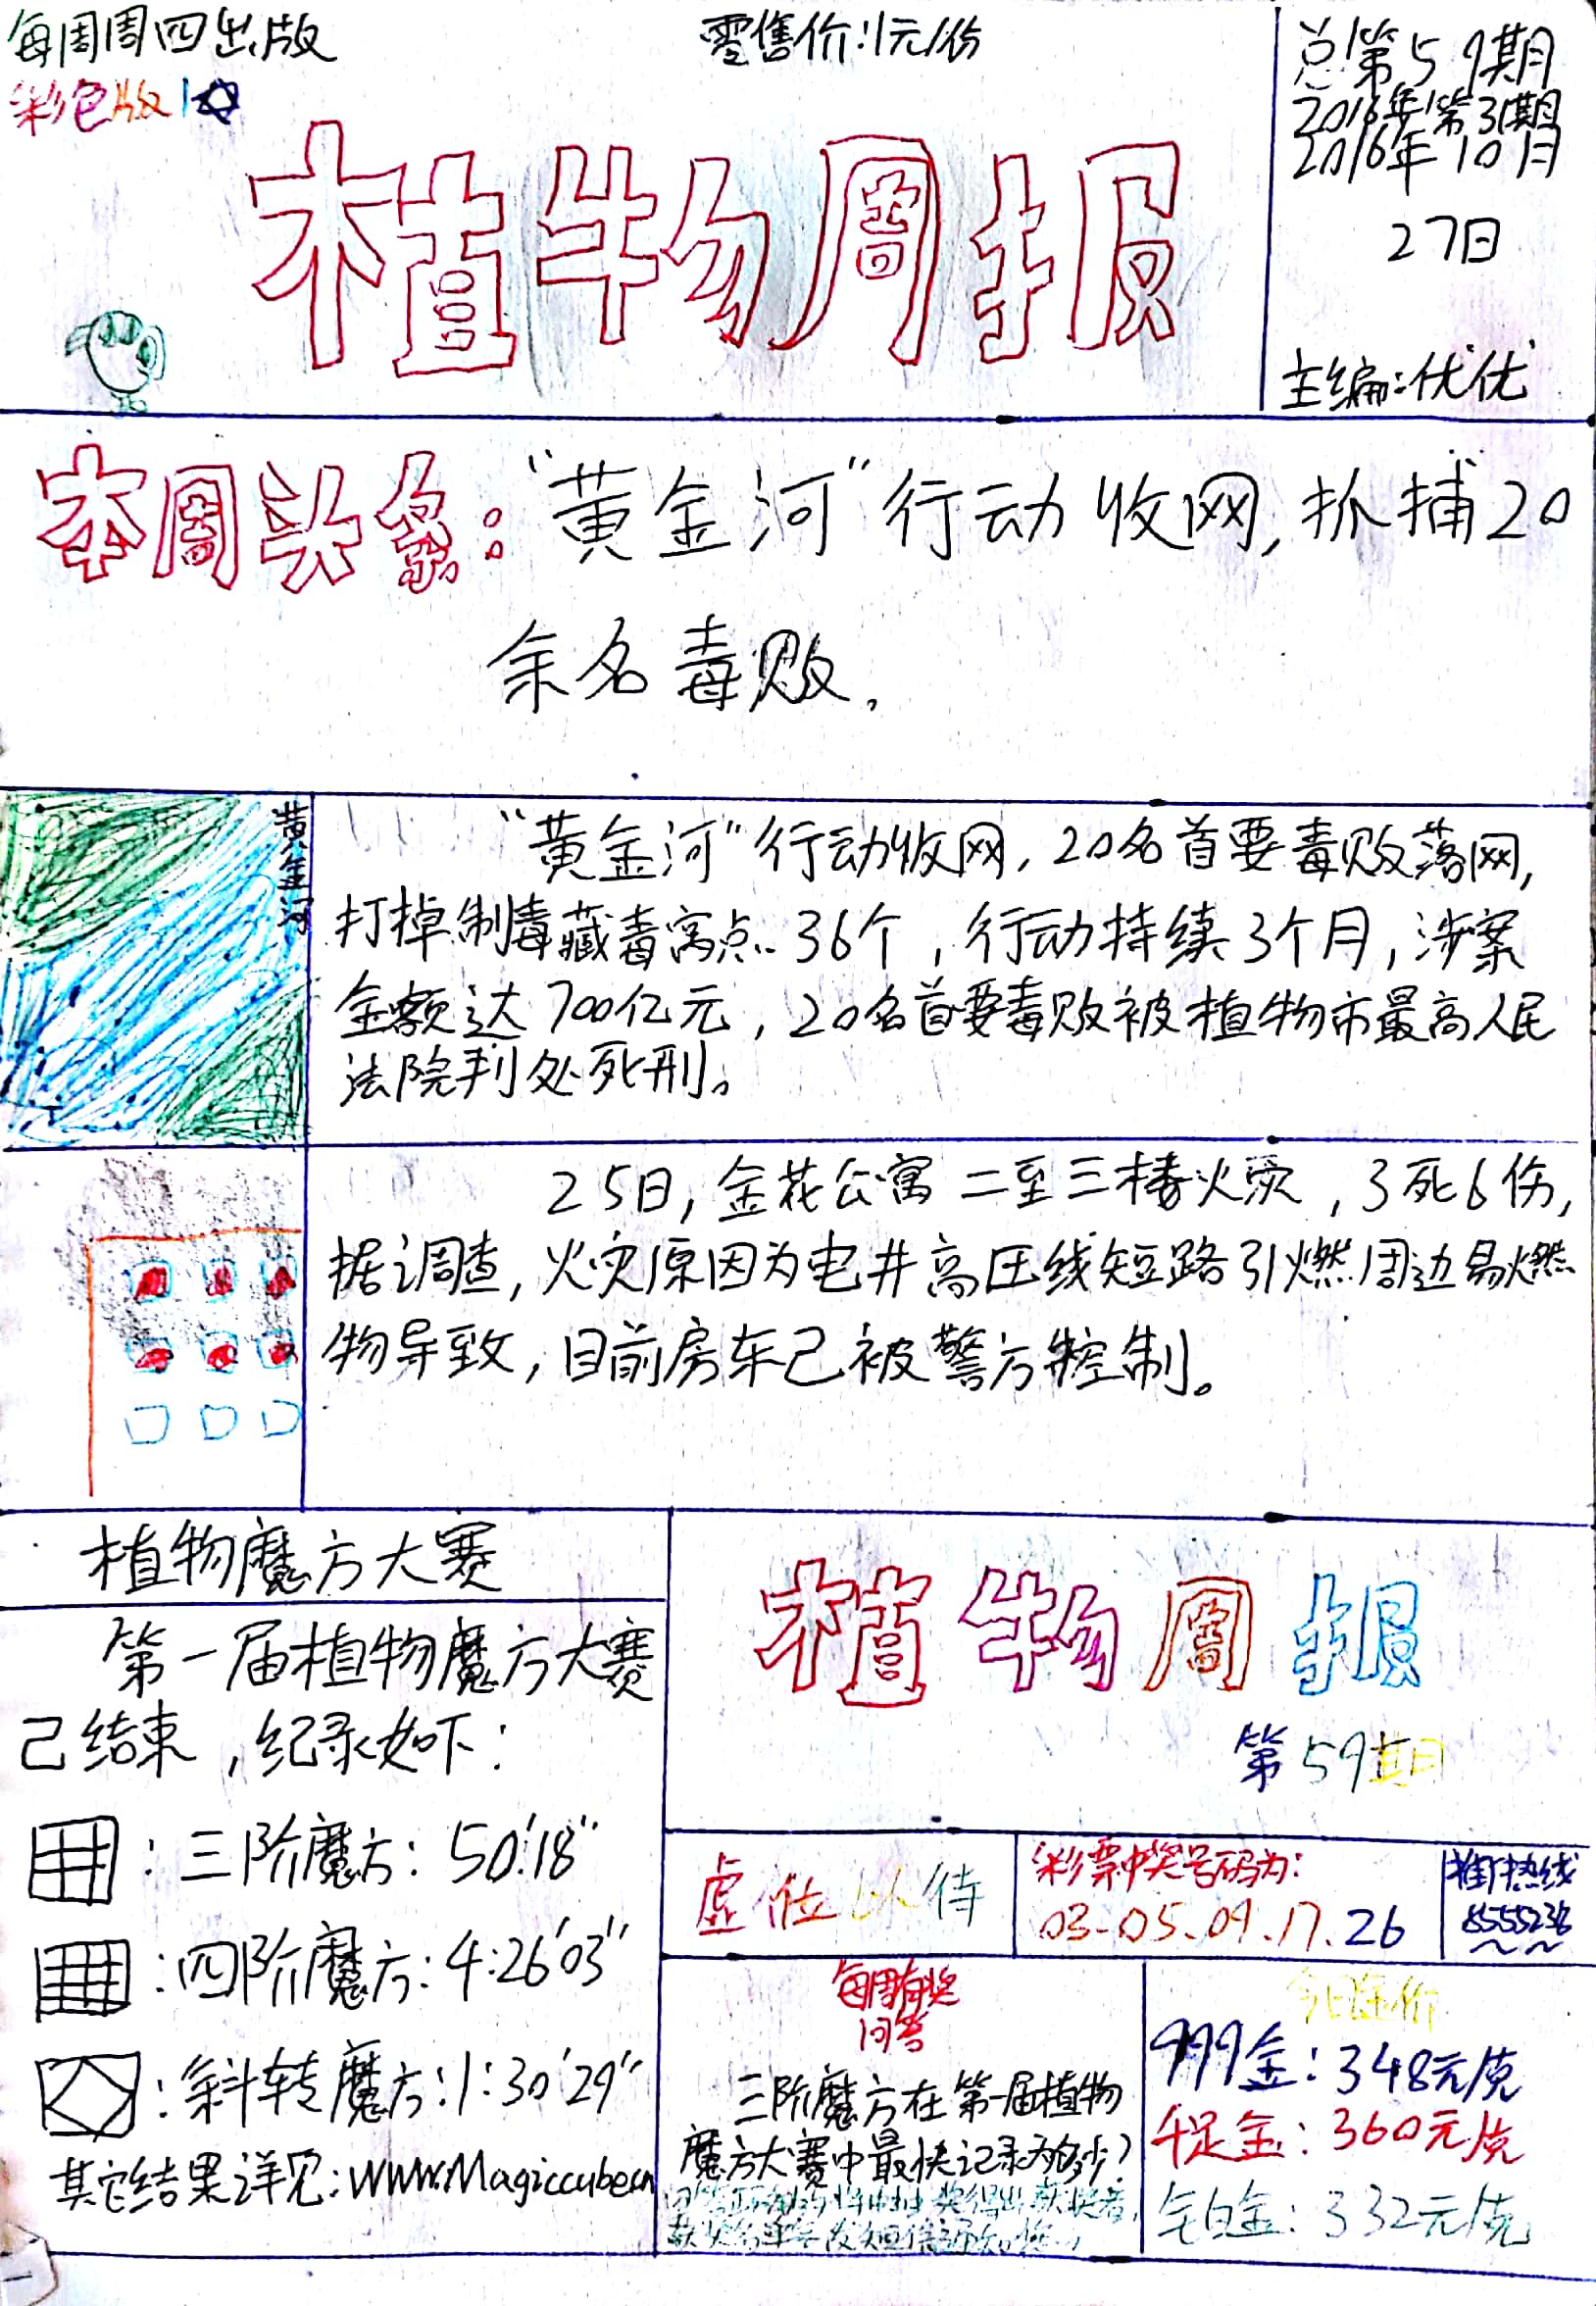 每周周四出版
零售价:1元/份
彩色版
总第59期
2016年第31期
2016年10月
27日
植物周报
主编:优优
本周头条:“黄金河”行动收网,抓捕20
余名毒贩.
黄金河
“黄金河”行动收网,20名首要毒贩落网,
打掉制毒藏毒窝点36个,行动持续3个月,涉案
金额达700亿元,20名首要毒贩被植物市最高人民
法院判处死刑。
25日,金花公寓二至三楼火灾,3死6伤,
据调查,火灾原因为电井高压线短路引燃周边易燃
物导致,目前房东己被警方控制。
植物魔方大赛
第一届植物魔方大赛
己结束,纪录如下:
:三阶魔方:50'18"
:四阶魔方:4:26'03"
:斜转魔方:1:30'29"
其它结果详见:WWW.Magiccube.cn
植物周报
第59期
虚位以待
彩票中奖号码为:
03-05.09.17.26
热线
每周有奖
问答
三阶魔方在第一届植物
魔方大赛中最快记录为多少?
今日金价
999金:348元/克
千足金:360元/克
铂金:332元/克